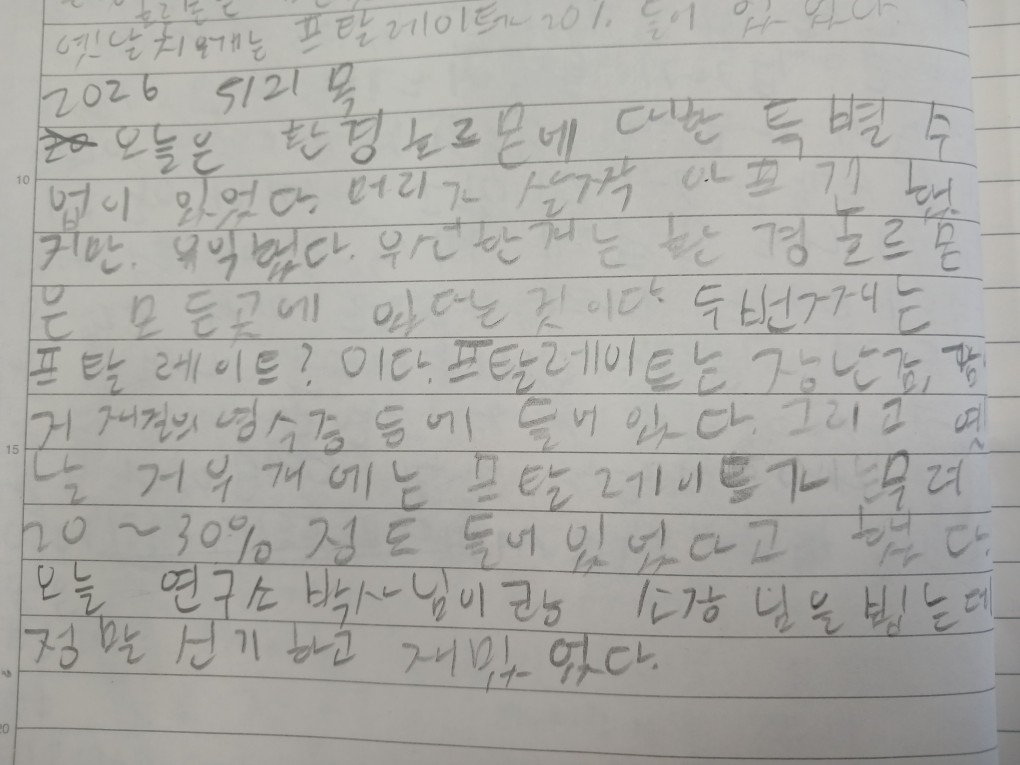 옛날 지우개는 프탈레이트가 20% 들어 있었다.
2026 5/21 목
오늘은 환경 호르몬에 대한 특별 수
업이 있었다. 머리가 살짝 아프긴 했
지만. 유익했다. 우선 한 개는 환경 호르몬
은 모든 곳에 있다는 것이다. 두번째는
프탈레이트? 이다. 프탈레이트는 장난감,
거 재질의 영수증 등에 들어 있다. 그리고 옛
날 지우개에는 프탈레이트가 무려
20~30% 정도 들어 있었다고 했다.
오늘 연구소 박사님이
정말 신기하고 재밌었다.